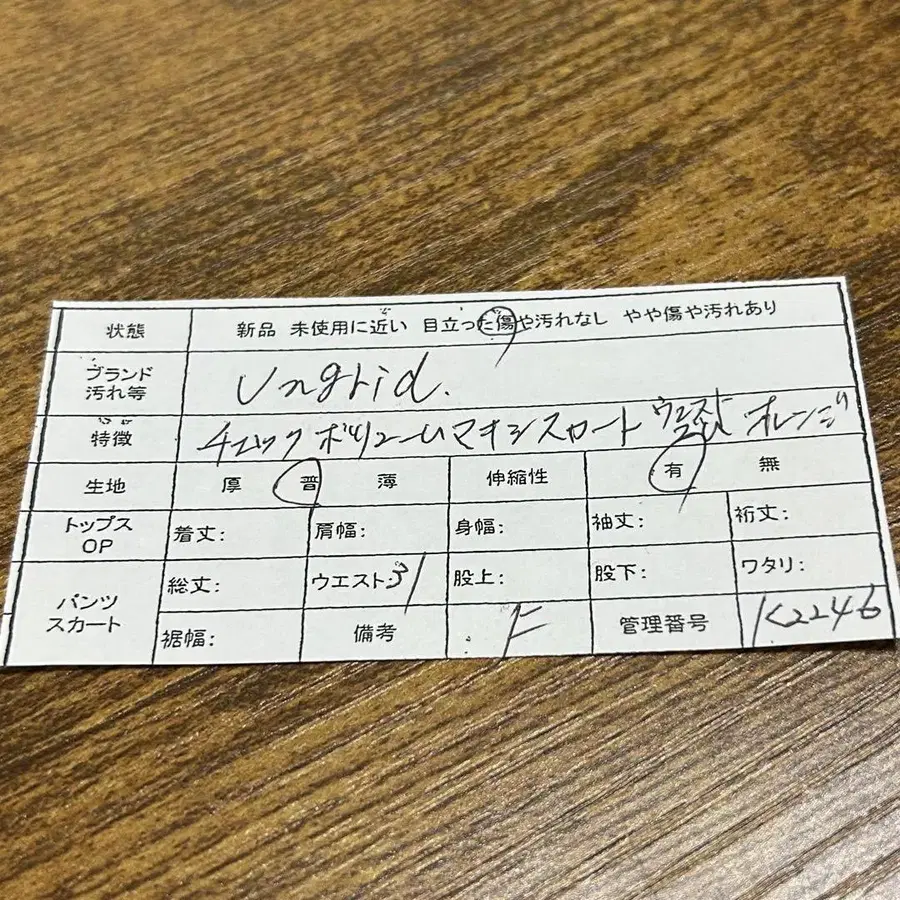 状態 新品 未使用に近い 目立った傷や汚れなし やや傷や汚れあり
ブランド
汚れ等 Ungrid.
特徴 チェックボリュームマキシスカート ウエストゴム オレンジ
生地 厚 普 薄 伸縮性 有 無
トップス
OP 着丈: 肩幅: 身幅: 袖丈: 裄丈:
パンツ
スカート 総丈: ウエスト:31 股上: 股下: ワタリ:
裾幅: 備考 F 管理番号 K2246